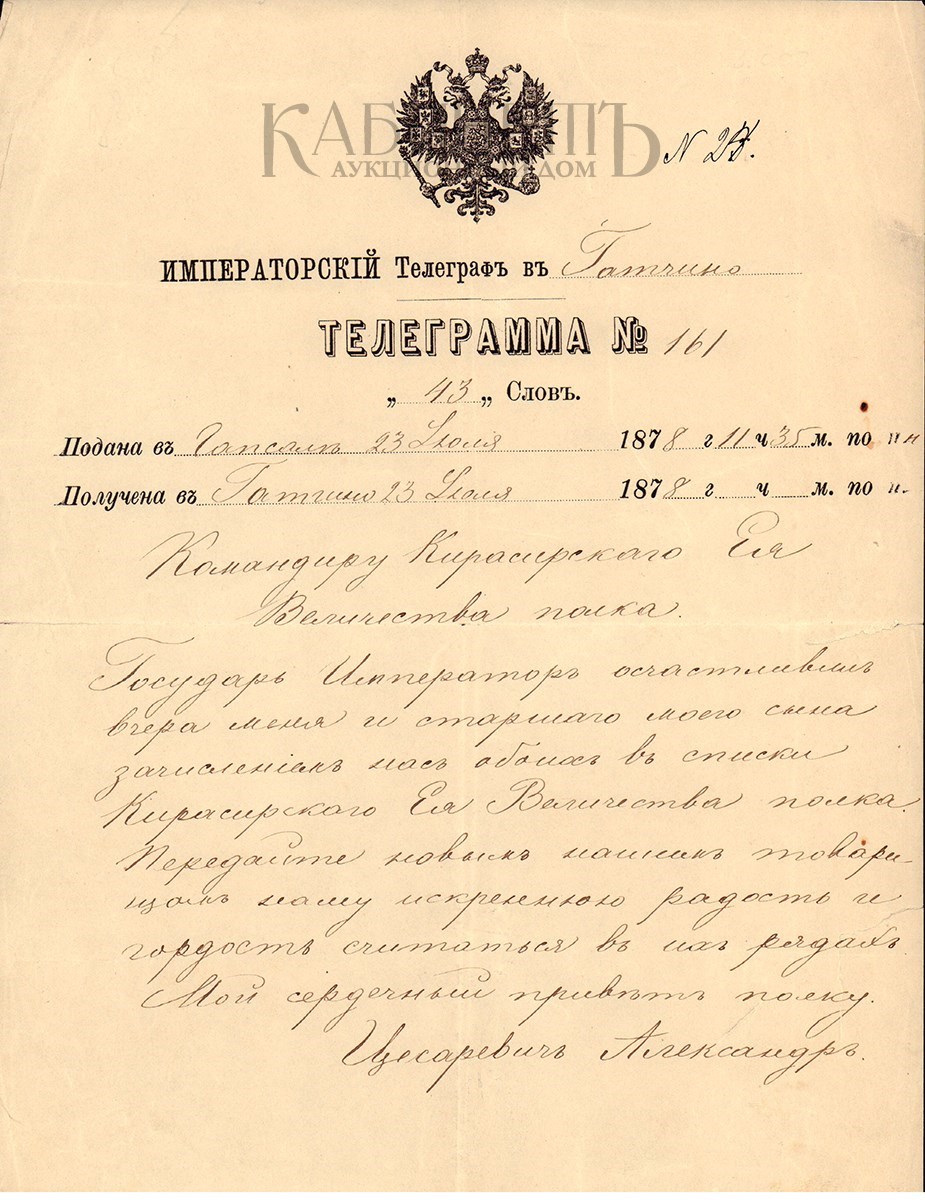 КАБИНЕТЪ
АУКЦИОННЫЙ ДОМ
N 27.
ИМПЕРАТОРСКІЙ Телеграфъ въ Гатчино
ТЕЛЕГРАММА № 161
„ 43 „ Словъ.
Подана въ Гапсалѣ 23 Іюля 1878 г 11 ч 35 м. по пн
Получена въ Гатчино 23 Іюля 1878 г ч м. по п.
Командиру Кирасирскаго Ея
Величества полка.
Государь Императоръ осчастливилъ
вчера меня и старшаго моего сына
зачисленіемъ насъ обоихъ въ списки
Кирасирскаго Ея Величества полка.
Передайте новымъ нашимъ товари-
щамъ нашу искреннюю радость и
гордость считаться въ ихъ рядахъ.
Мой сердечный привѣтъ полку.
Цесаревичъ Александръ.